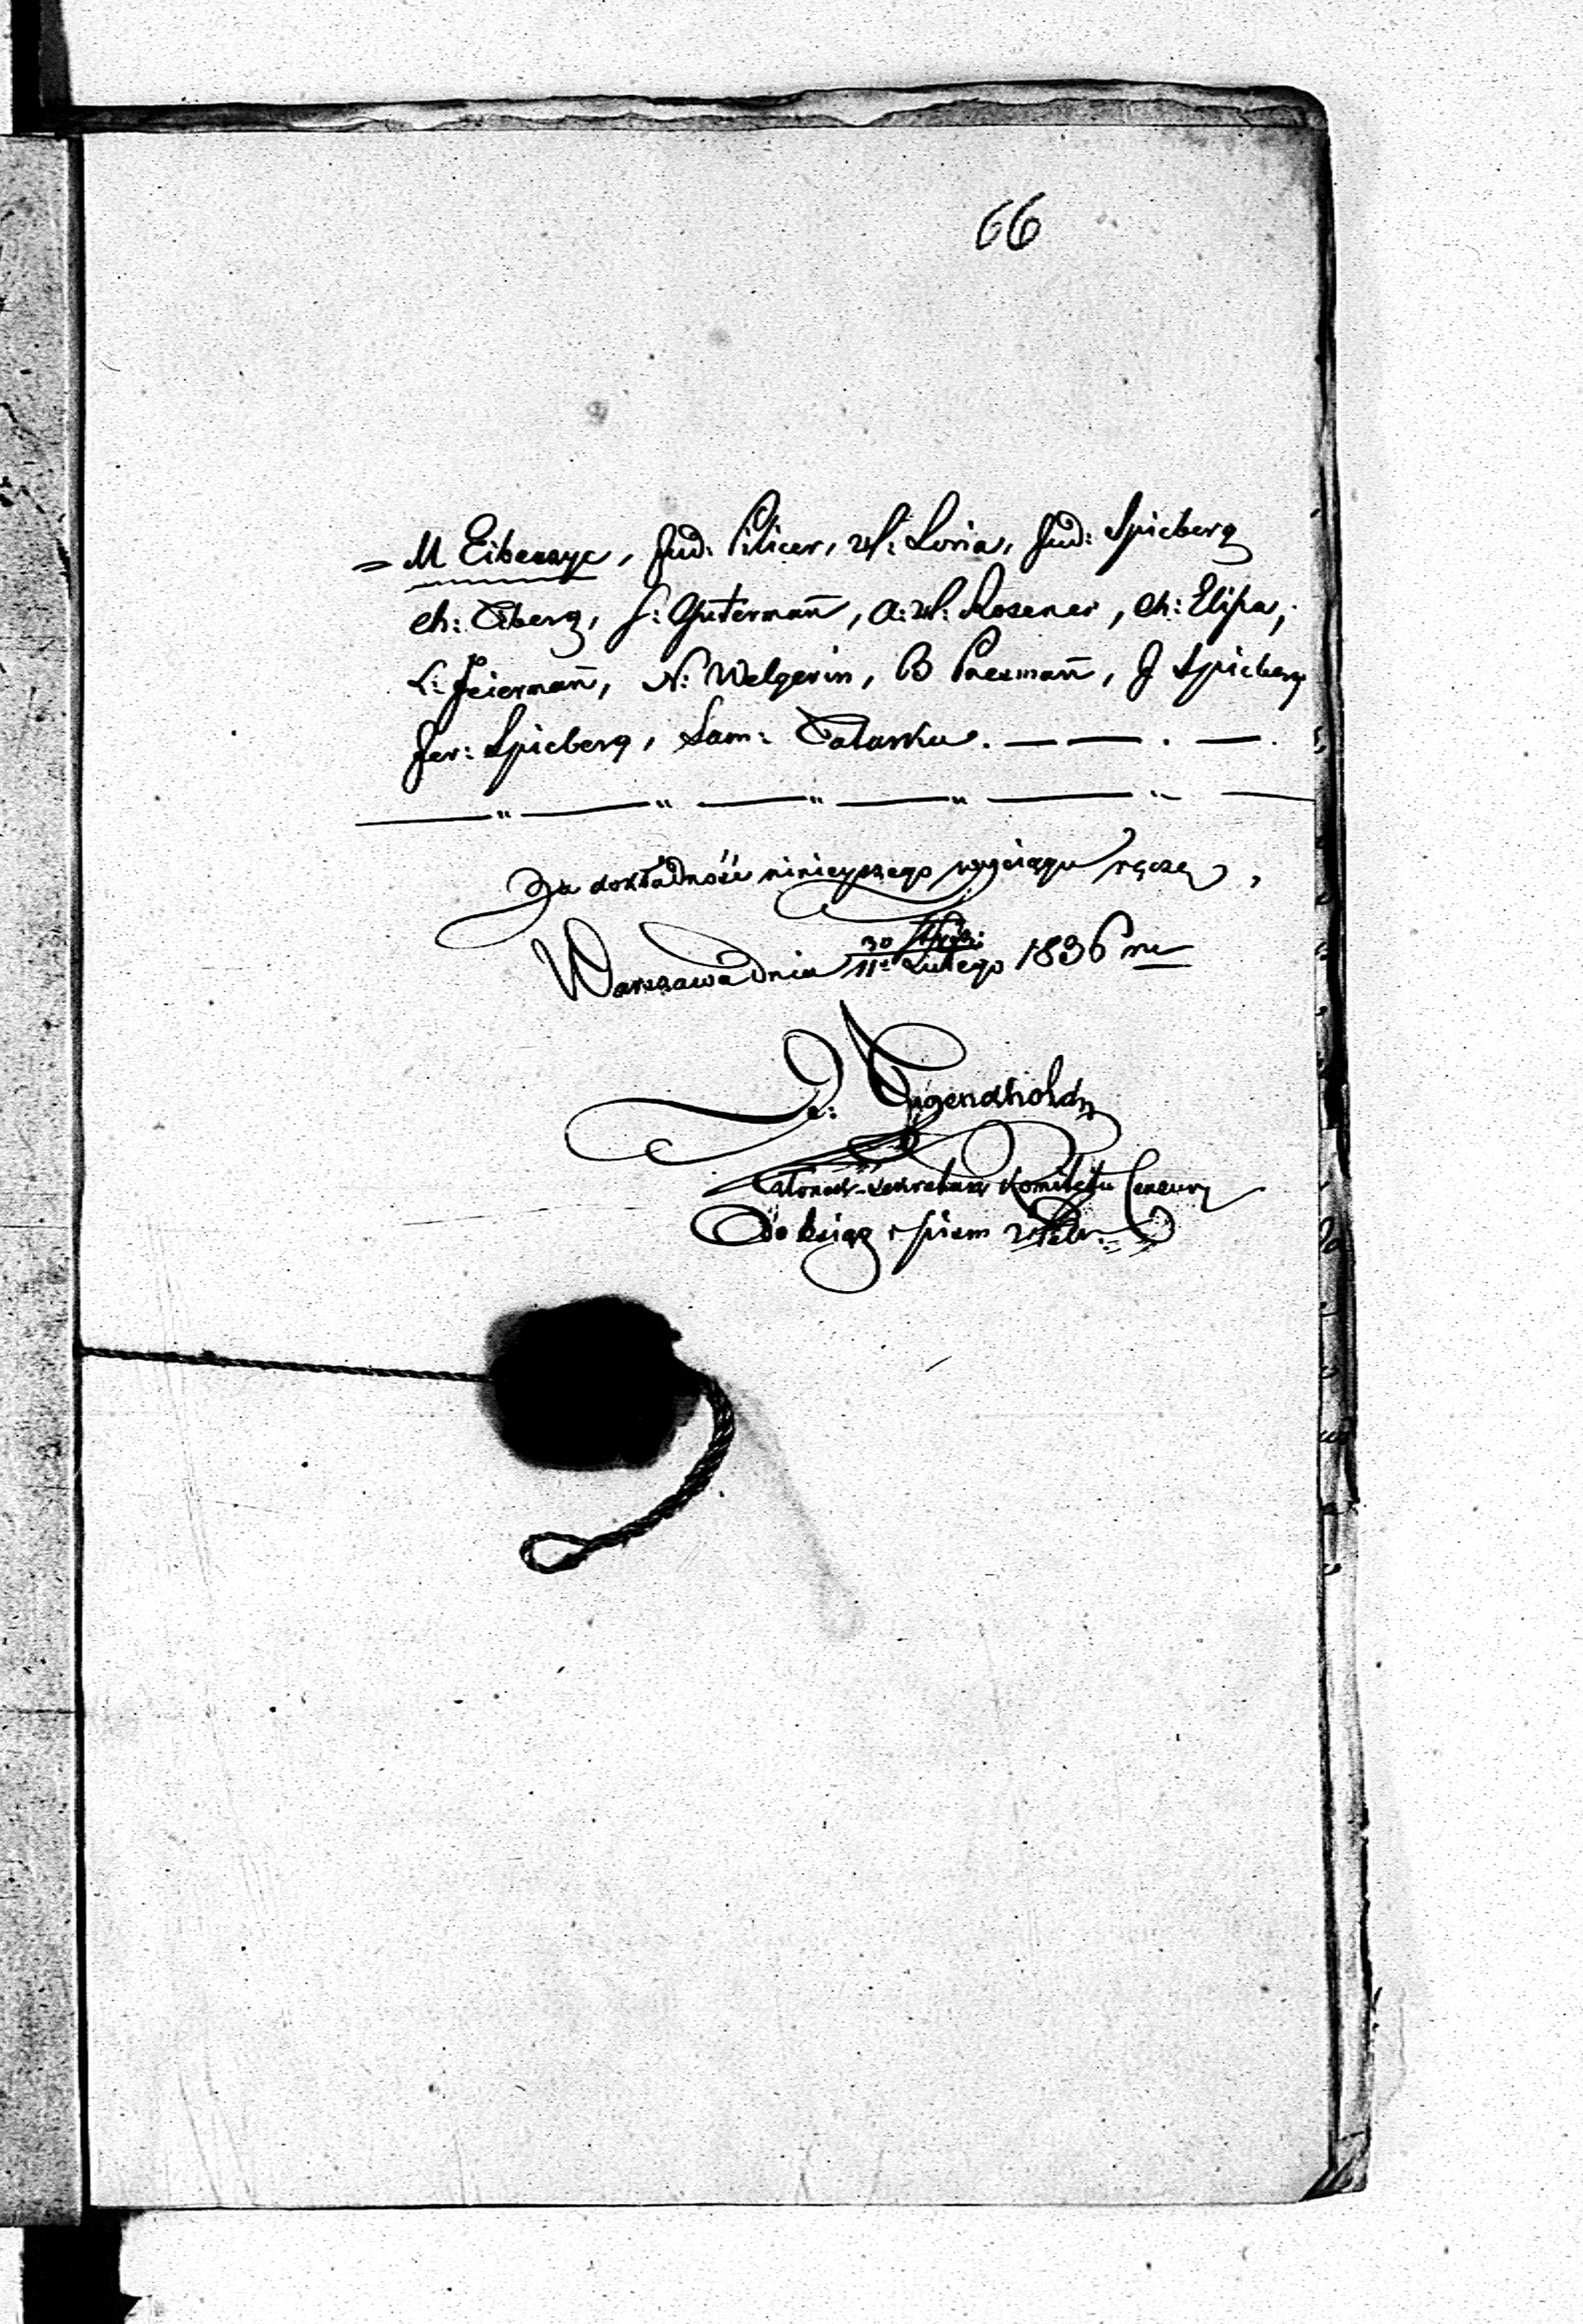 66
= M Eibeszyc, Jud: Pilicer, W: Loria, Jud: Spicberg
Ch: Cberg, J: Gutermañ, A: W: Rosener, Ch: Elipa,
L: Feiermañ, N: Welgerin, B Paermañ, J Spicberg
Jer: Spicberg, Sam: Tatarka. — — . — .
Za dokładność niniejszego wyciągu ręczę,
Warszawa dnia 30 Stycz: / 11go Lutego 1836 ru
J: Tugendhold
Członek-Sekretarz Komitetu Cenzury
do ksiąg i pism Hebr: